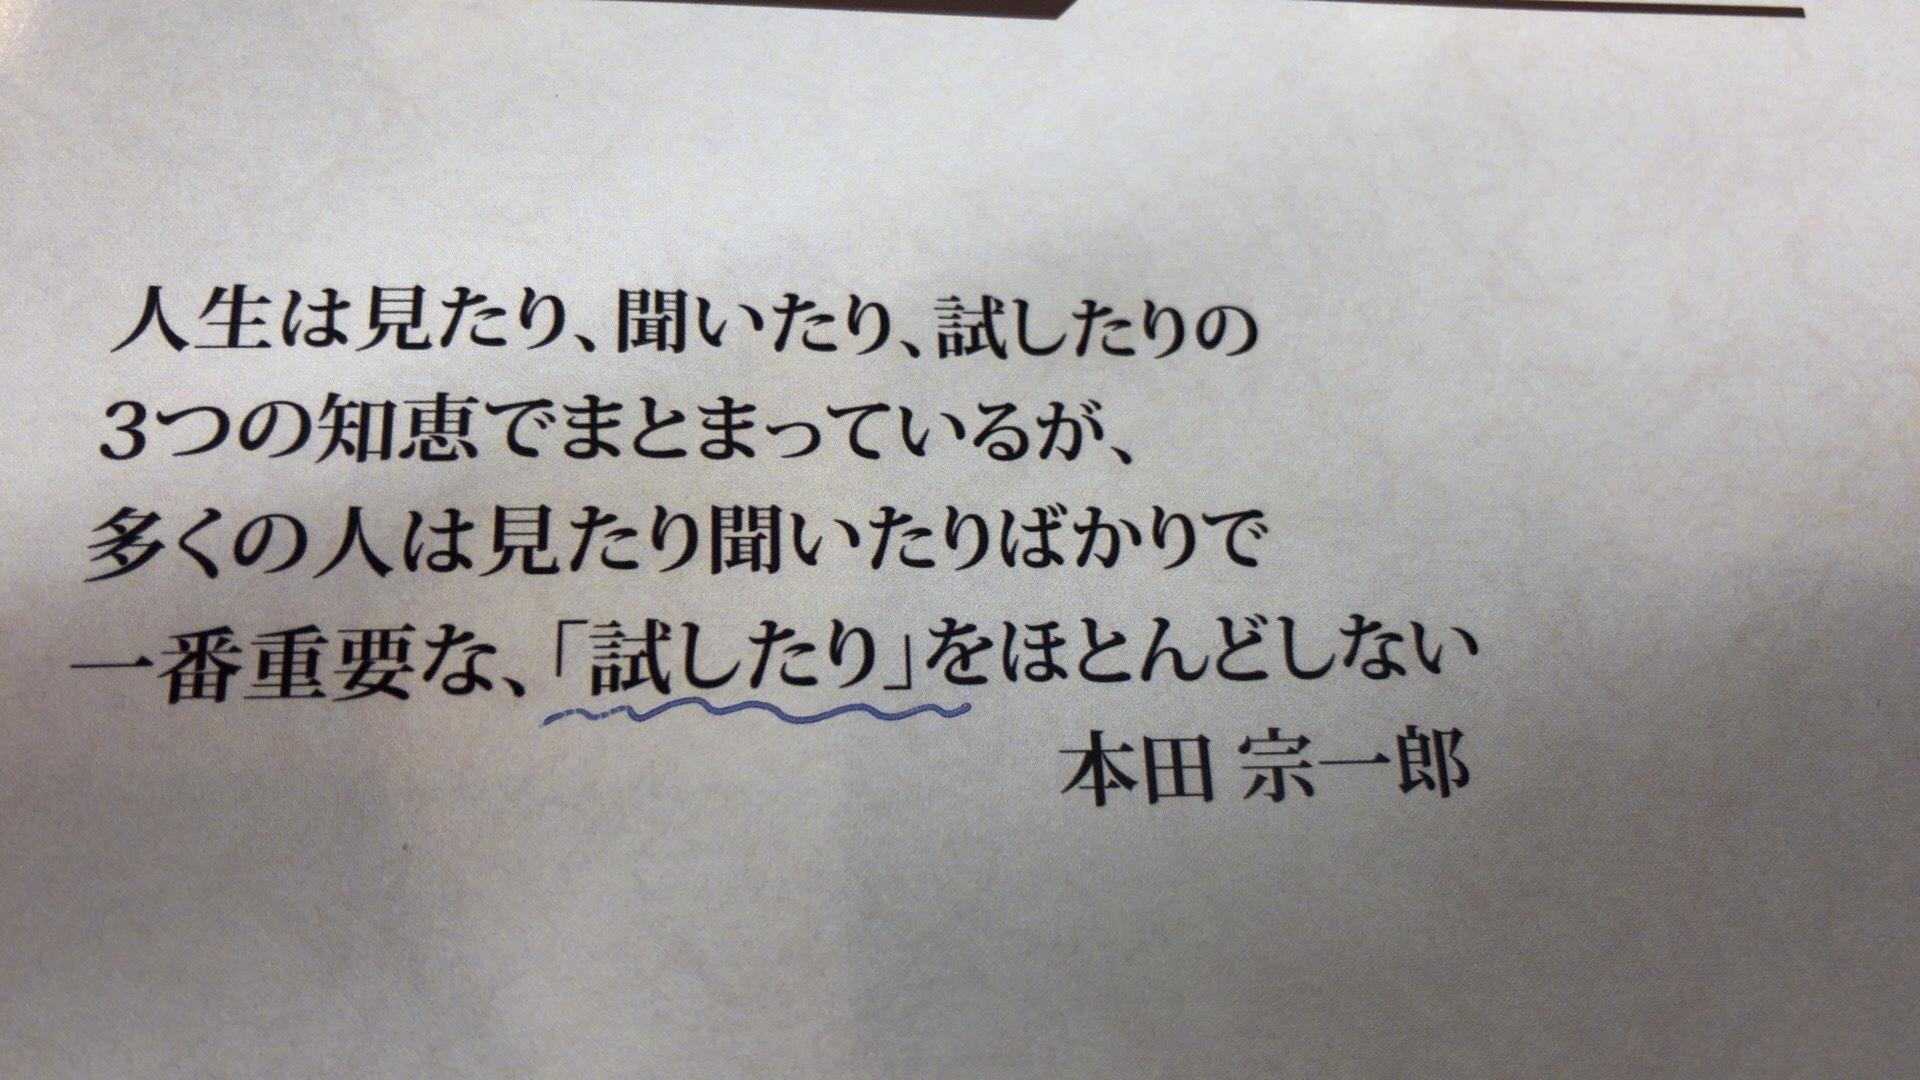 人生は見たり、聞いたり、試したりの
3つの知恵でまとまっているが、
多くの人は見たり聞いたりばかりで
一番重要な、「試したり」をほとんどしない
本田 宗一郎